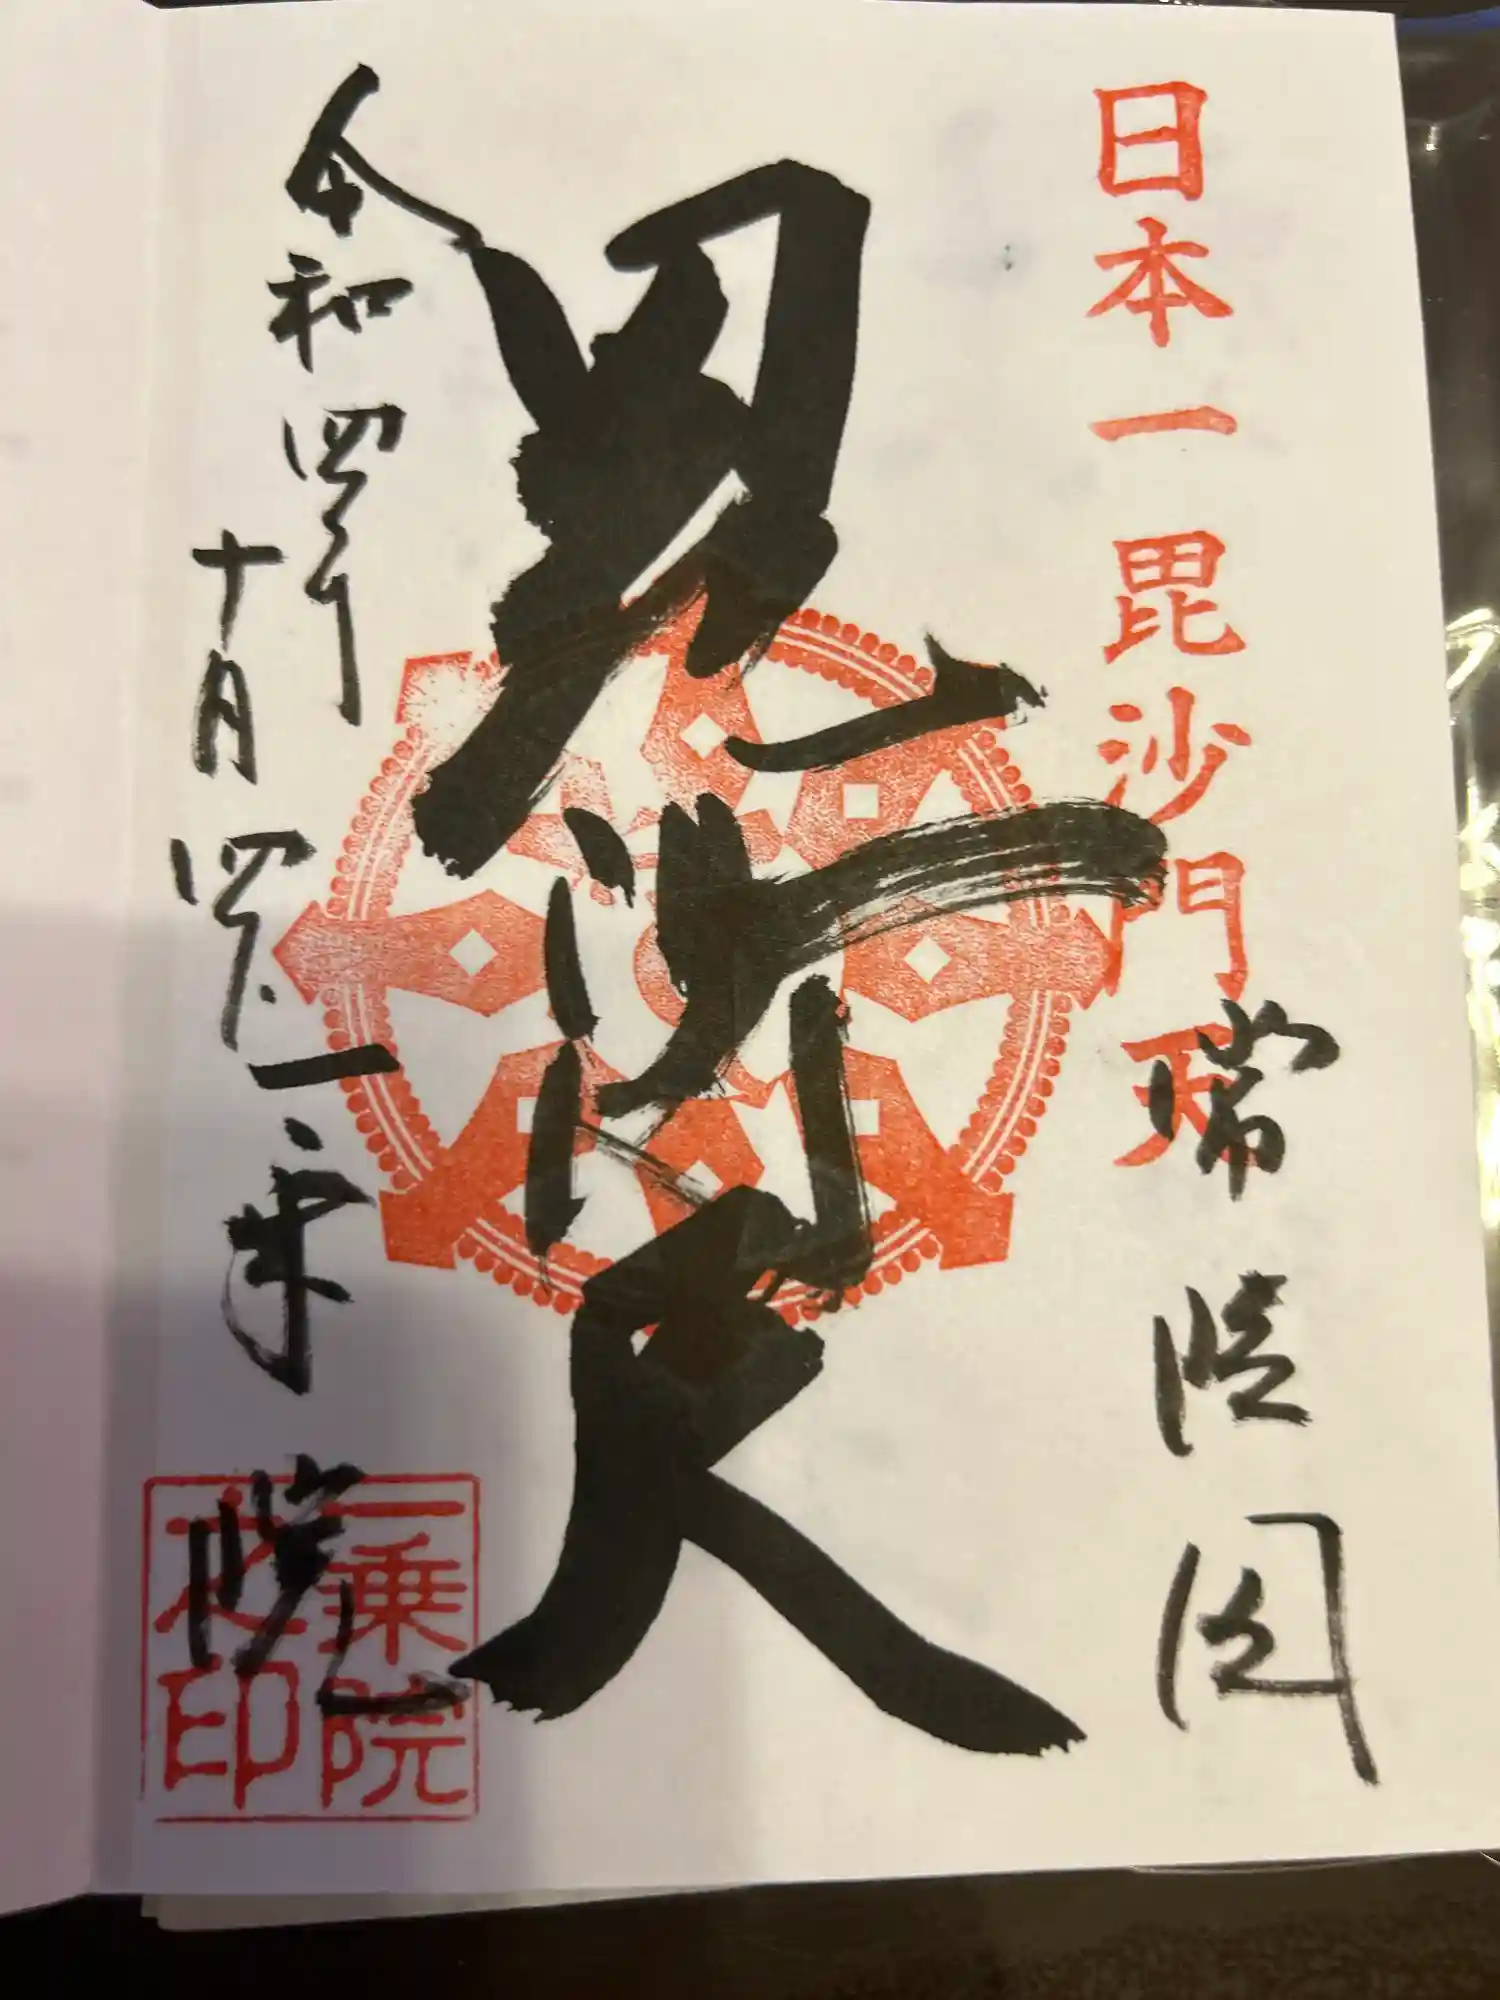 日本一毘沙門天
常陸国
毘沙門天
令和四年
十月四日
一乗院
一乗院
之印